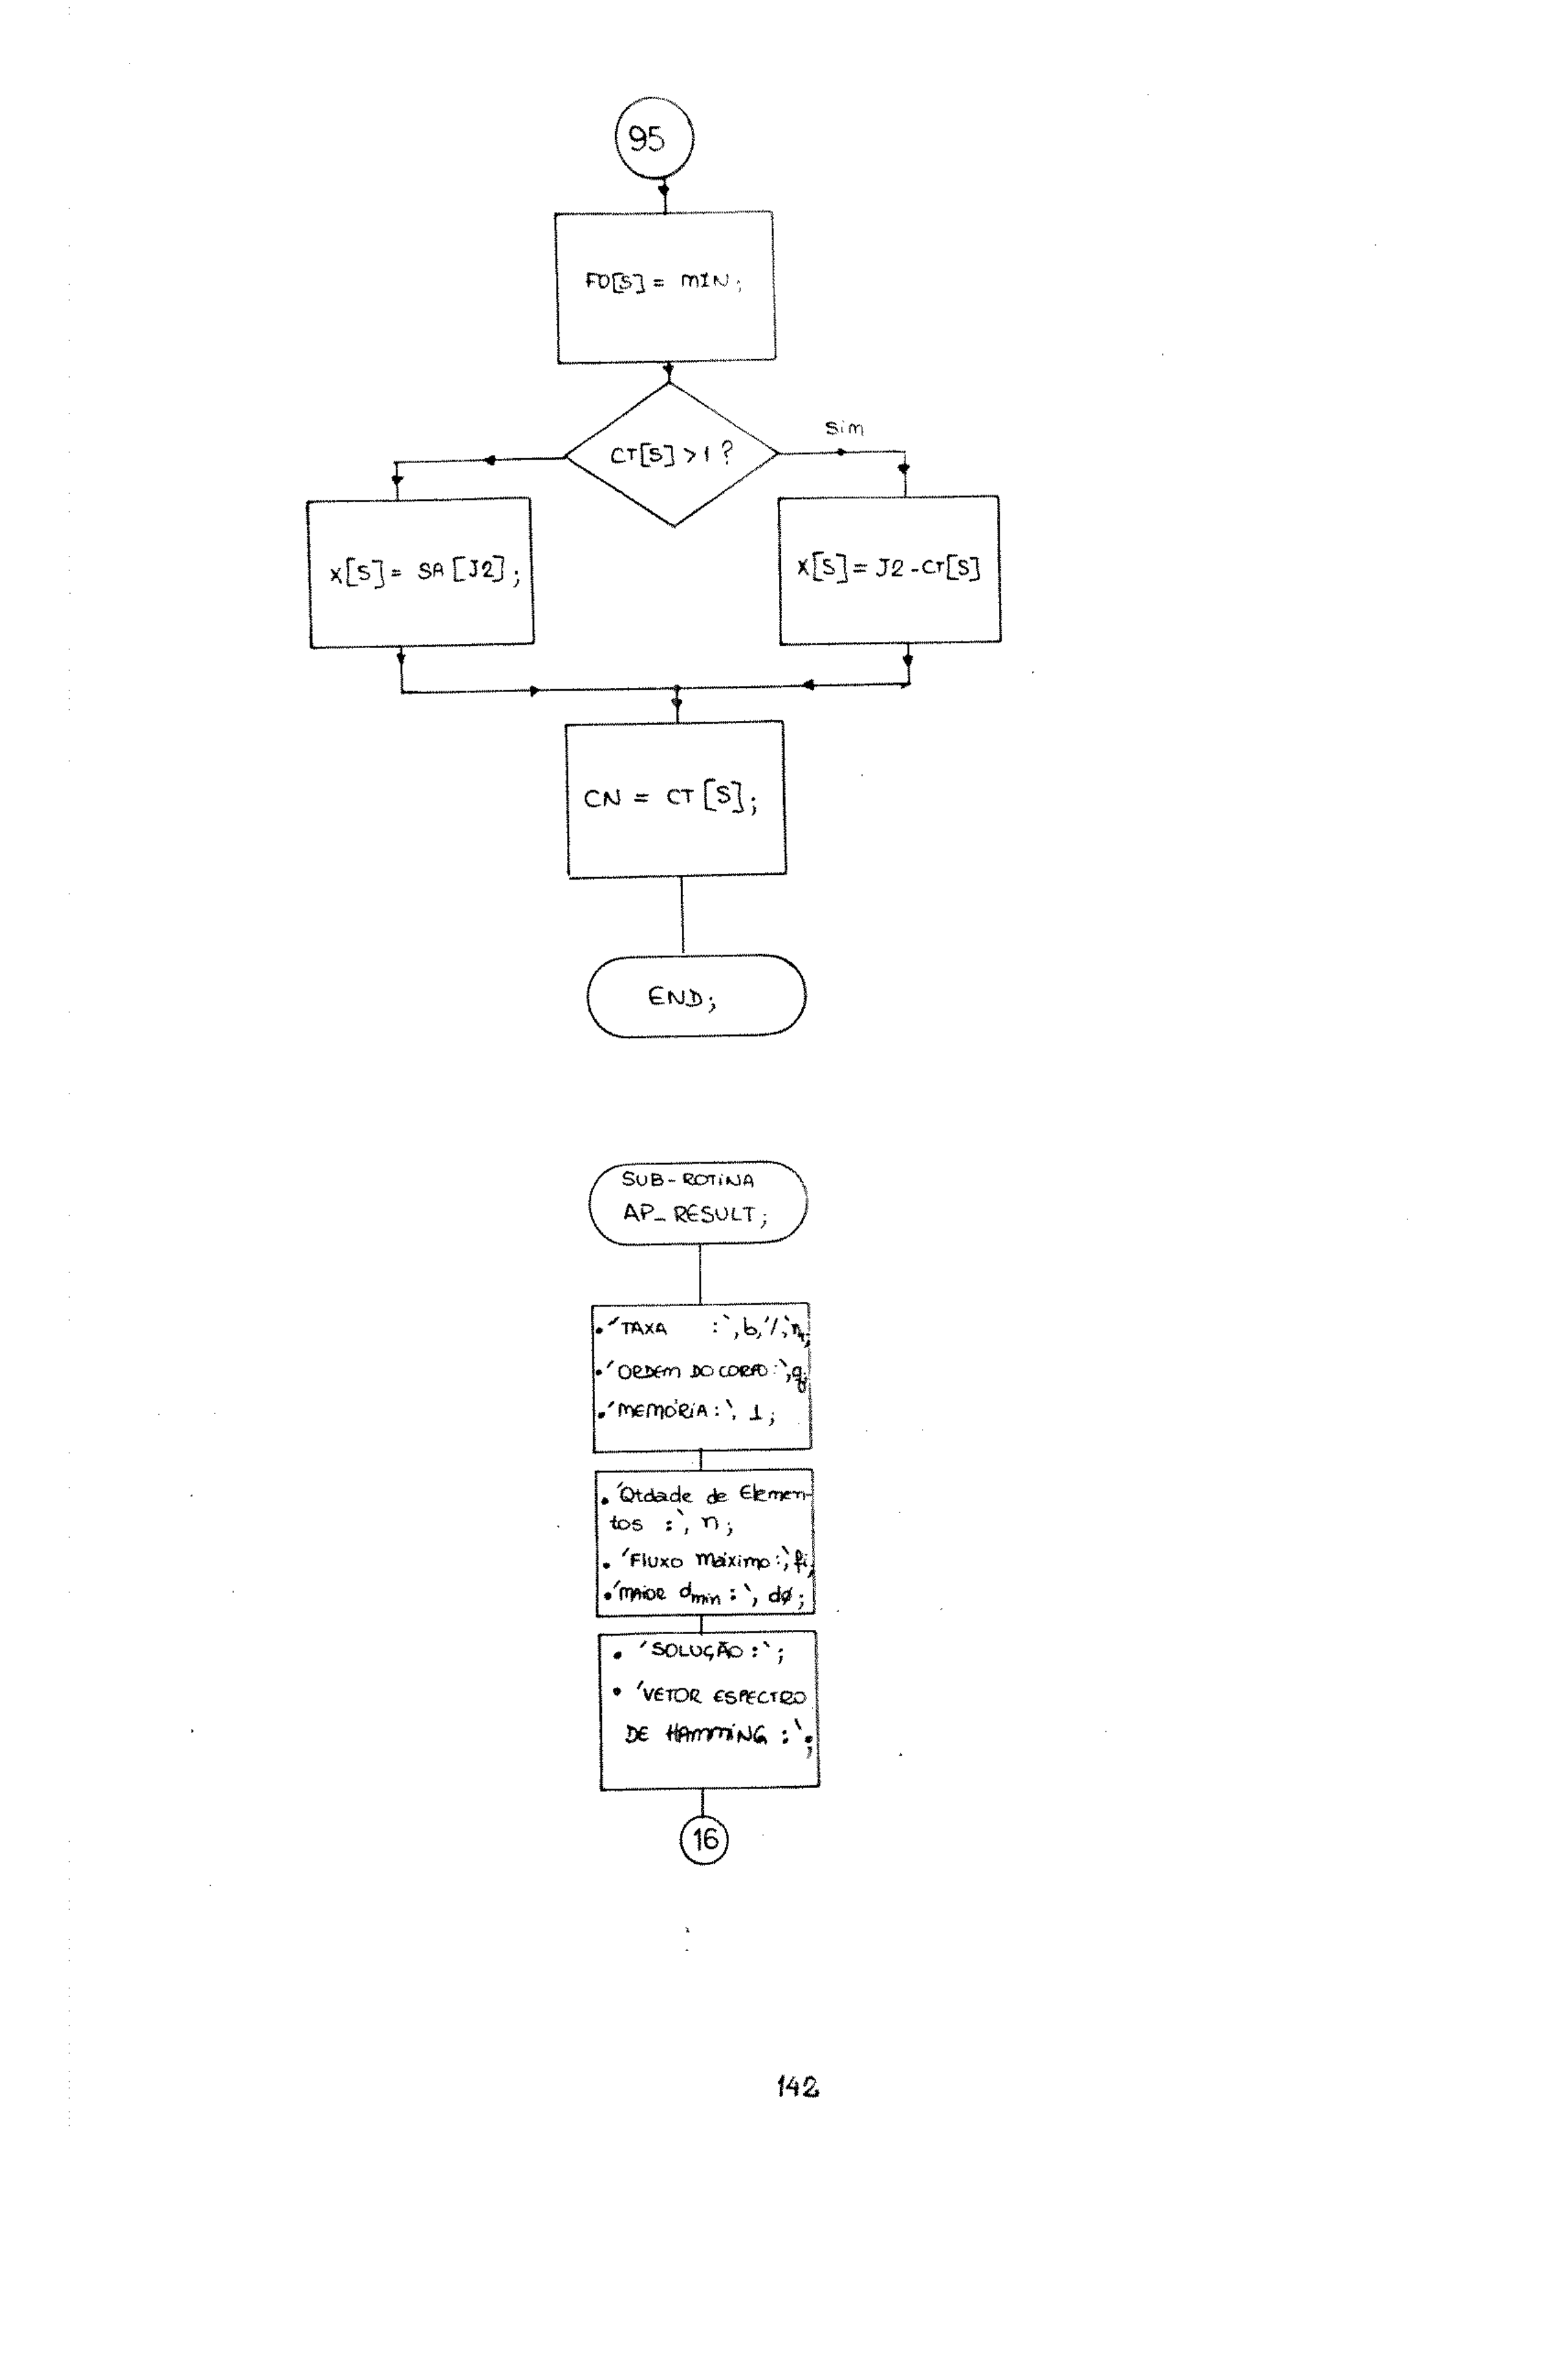 95
FO[S] = MIN;
CT[S] > 1 ?
sim
X[S] = SA [J2];
X[S] = J2 - CT[S]
CN = CT [S];
END;
SUB-ROTINA
AP_RESULT;
• 'TAXA :`, b,'/,`n;
• 'ORDEM DO CORPO :`, q;
• 'MEMÓRIA : `, 1 ;
• 'Qtdade de Elemen-
tos : `, n ;
• 'Fluxo máximo :`, fi;
• 'MAIOR dmin : `, dø ;
• 'SOLUÇÃO : ` ;
• 'VETOR ESPECTRO
DE HAMMING : `;
16
142